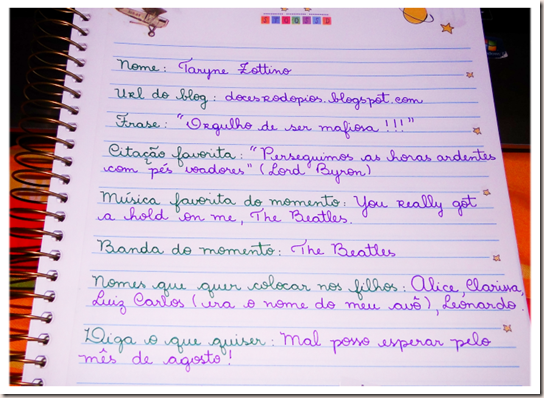 Nome: Taryne Zottino
Url do blog: docesrodopios.blogspot.com
Frase: "Orgulho de ser mafiosa!!!"
Citação favorita: "Perseguimos as horas ardentes
com pés voadores" (Lord Byron)
Música favorita do momento: You really got
a hold on me, The Beatles.
Banda do momento: The Beatles
Nomes que quer colocar nos filhos: Alice, Clarissa,
Luiz Carlos (era o nome do meu avô), Leonardo.
Diga o que quiser: Mal posso esperar pelo
mês de agosto!